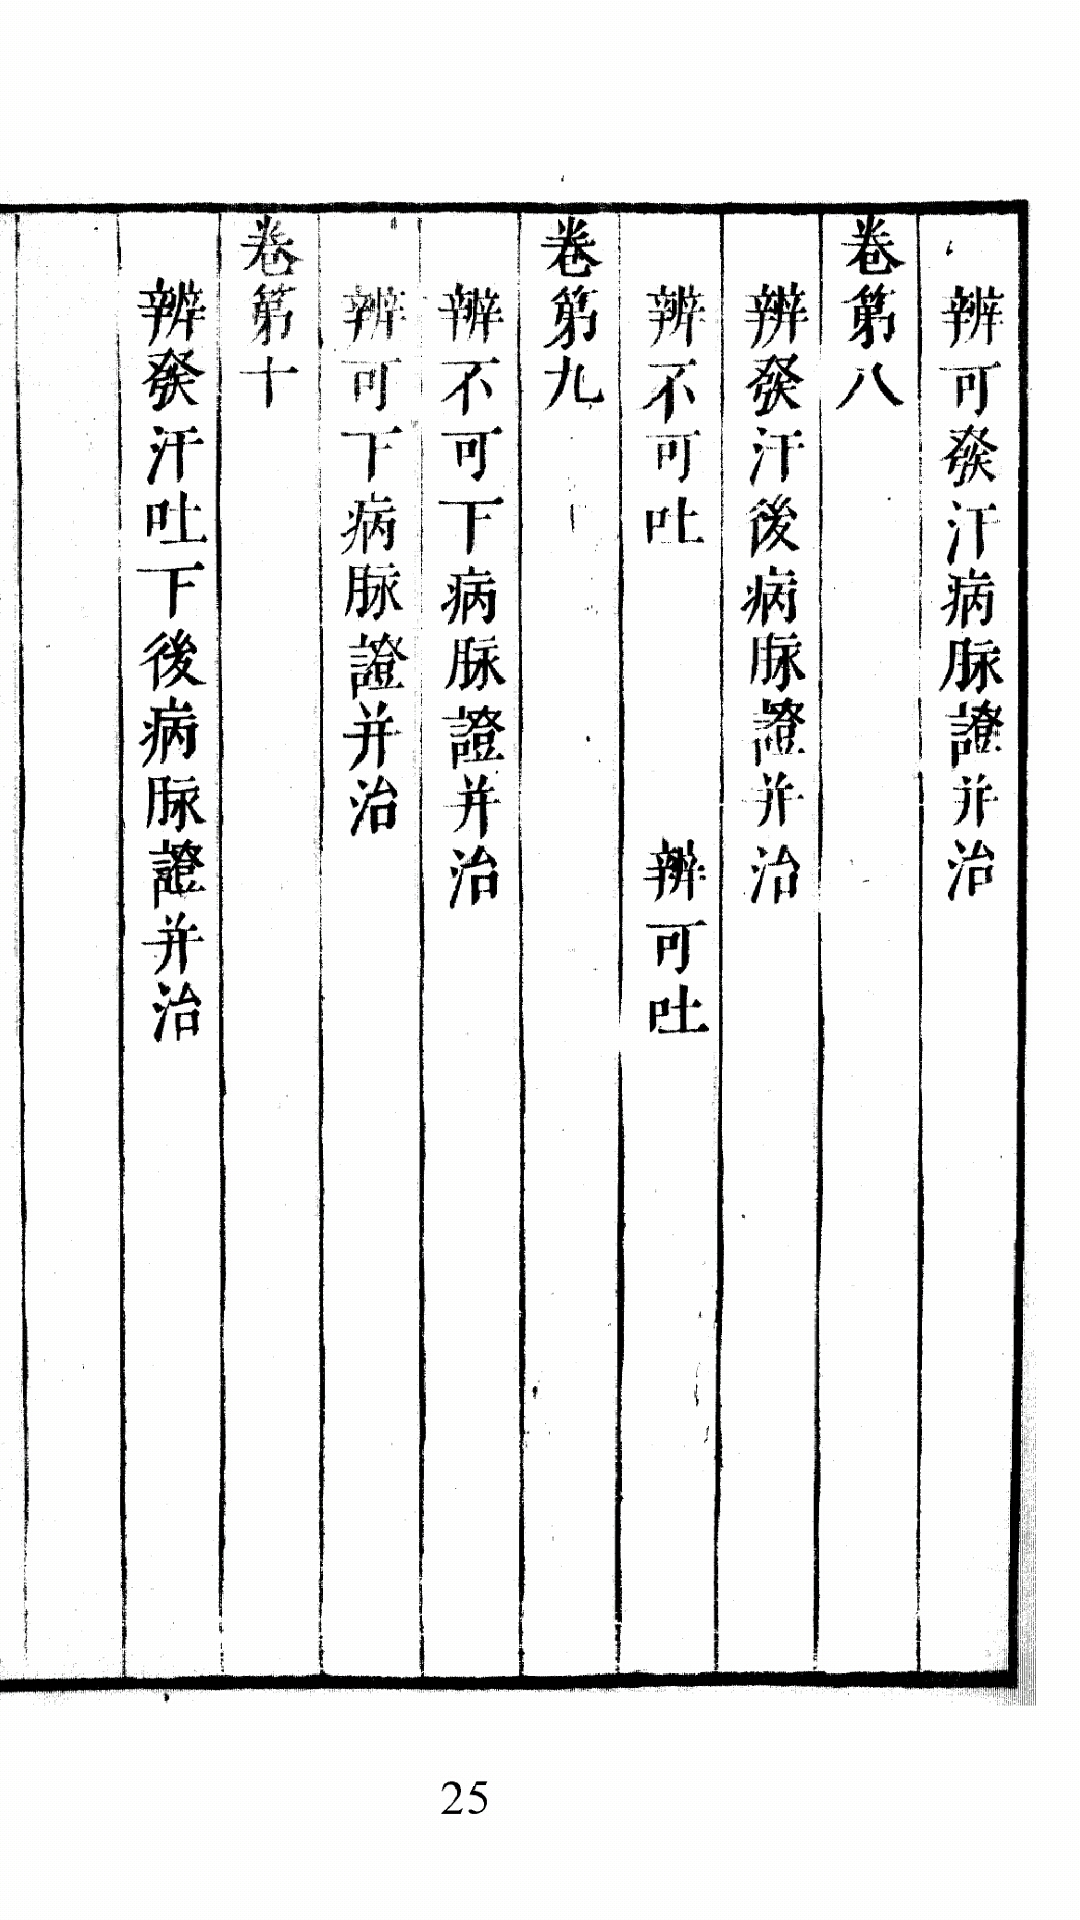 辨可發汗病脉證并治
卷第八
辨發汗後病脉證并治
辨不可吐　辨可吐
卷第九
辨不可下病脉證并治
辨可下病脉證并治
卷第十
辨發汗吐下後病脉證并治
25